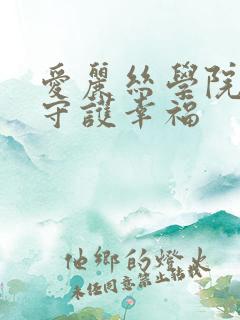 愛麗絲學院
守護幸福
他鄉的燈火
未經同意禁止轉載